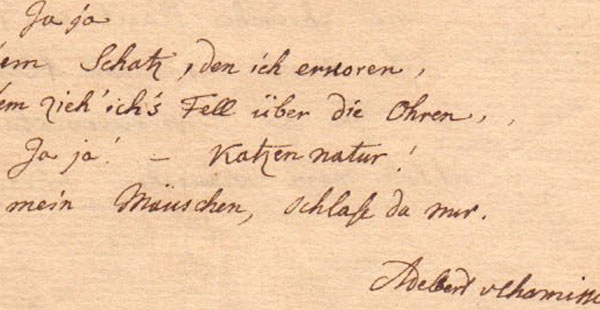 Ja ja
em Schatz, den ich erkoren,
em zieh' ich's Fell über die Ohren,
Ja ja! – Katzennatur!
mein Mäuschen, schlafe da nur.
Adelbert v Chamisso